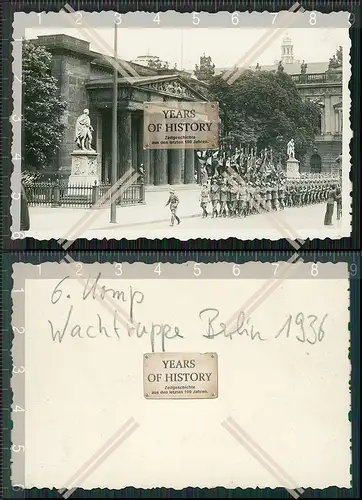 1 2 3 4 5 6 7 8
YEARS
OF HISTORY
Zeitgeschichte
aus den letzten 100 Jahren.
1 2 3 4 5 6 7 8
6. Komp
Wachtruppe Berlin 1936
YEARS
OF HISTORY
Zeitgeschichte
aus den letzten 100 Jahren.